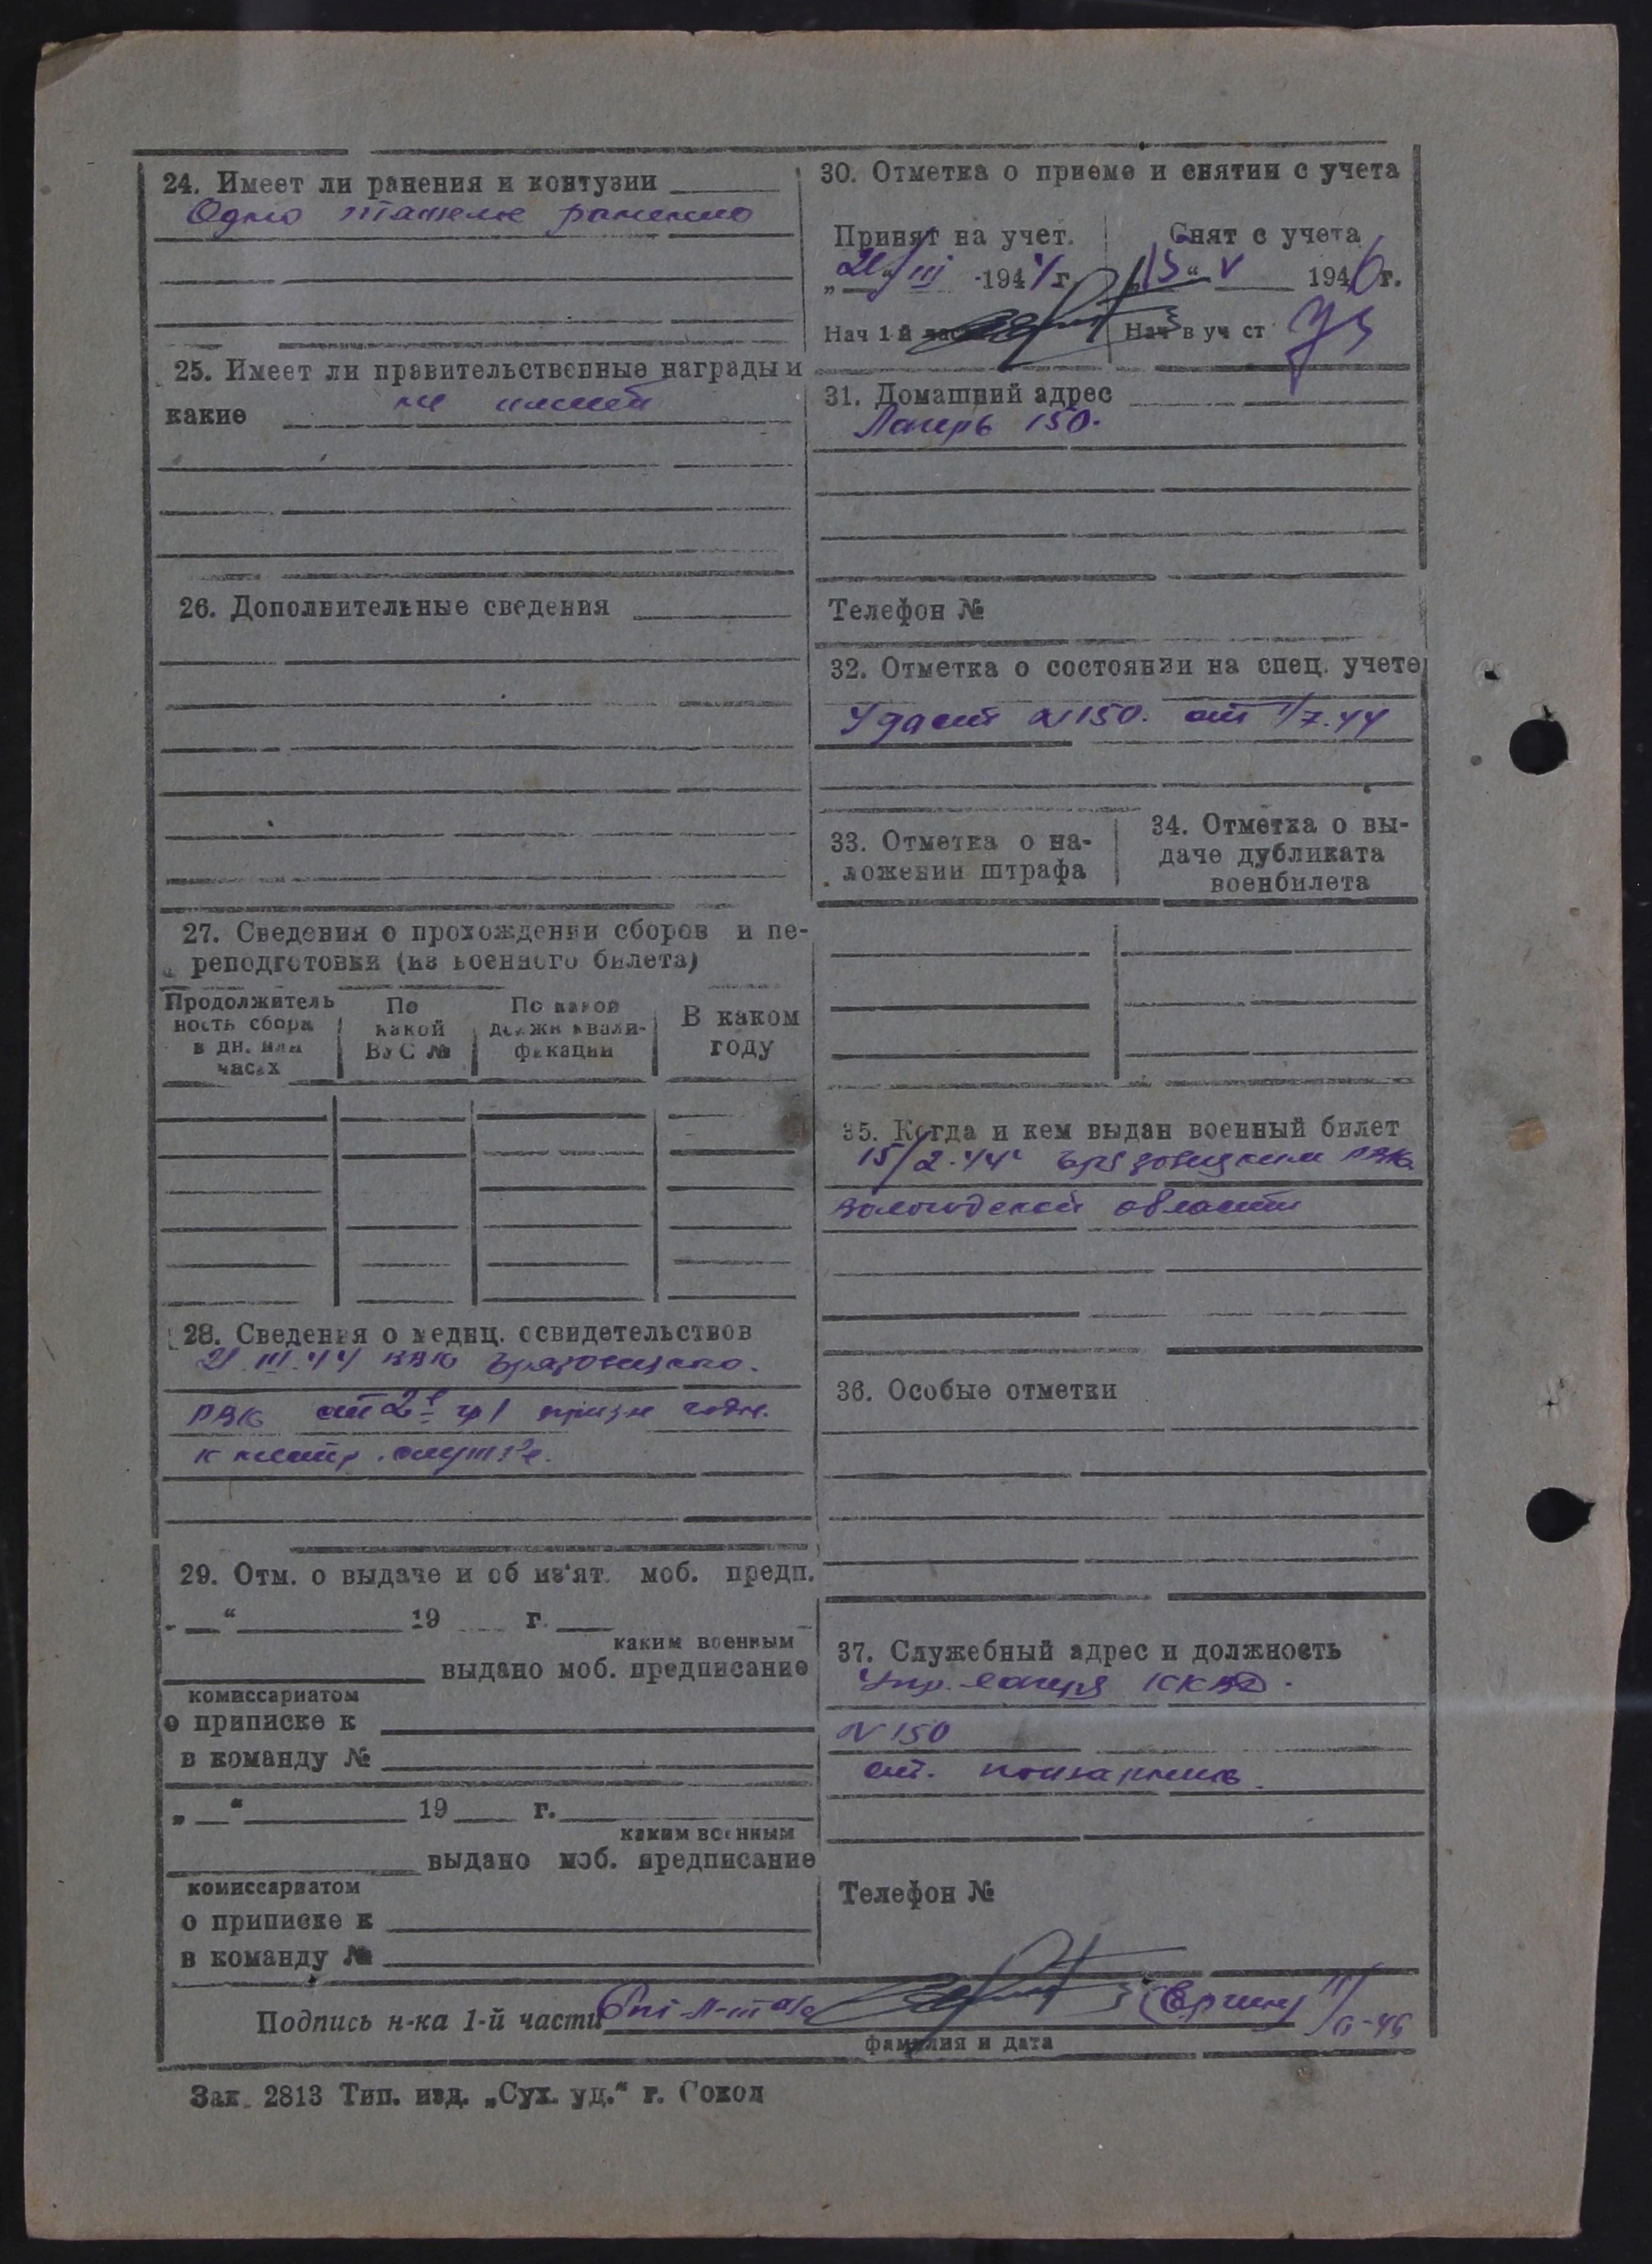 24. Имеет ли ранения и контузии
Одно тяжелое ранение
25. Имеет ли правительственные награды и
какие не имеет
26. Дополнительные сведения
27. Сведения о прохождении сборов и пе-
реподготовки (из военного билета)
Продолжитель
ность сбора
в дн. или
часах
По
какой
ВУС №
По какой
должн квали-
фикации
В каком
году
28. Сведения о медиц. освидетельствов
21.III.44 Грязовецкого
РВК
29. Отм. о выдаче и об из'ят. моб. предп.
„ “ 19 г.
каким военным
выдано моб. предписание
комиссариатом
о приписке к
в команду №
„ “ 19 г.
каким военным
выдано моб. предписание
комиссариатом
о приписке к
в команду №
30. Отметка о приеме и снятии с учета
Принят на учет.
„21“ III 1944 г.
Нач 1-й части
Снят с учета
„15“ V 1946 г.
Нач в уч ст
31. Домашний адрес
Лагерь 150.
Телефон №
32. Отметка о состоянии на спец. учете
Удост №150. от 1/7.44
33. Отметка о на-
ложении штрафа
34. Отметка о вы-
даче дубликата
военбилета
35. Когда и кем выдан военный билет
15/2.44 Грязовецким РВК
Вологодской области
36. Особые отметки
37. Служебный адрес и должность
Упр. лагеря НКВД.
N 150
Телефон №
Подпись н-ка 1-й части
фамилия и дата
Зак. 2813 Тип. изд. „Сух. уд.“ г. Сокол